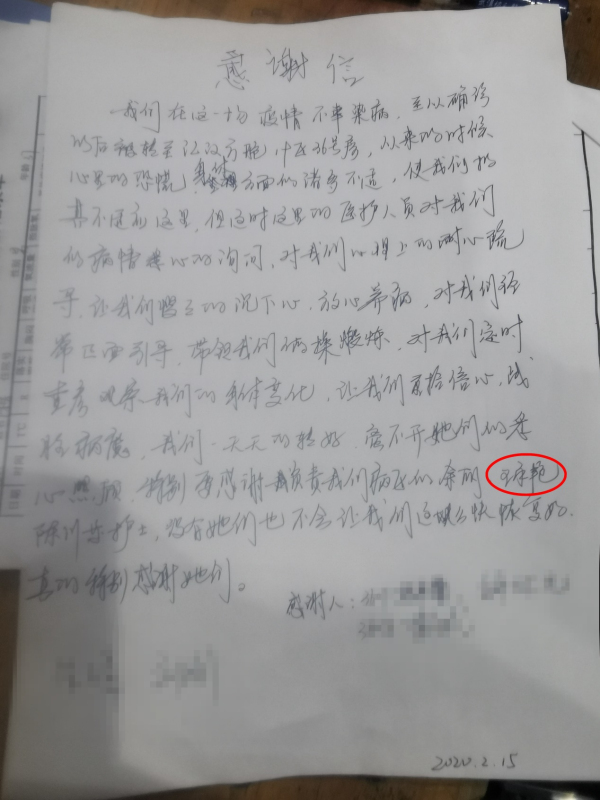 感谢信
我们在这一场疫情不幸染病,至从确诊
以后被转至江汉方舱,中区36号房,从来的时候
心里的恐慌,身体方面的诸多不适,使我们的
甚不适应这里,但这时这里的医护人员对我们
的病情悉心的询问,对我们心理上的耐心疏
导,让我们慢的沉下心,放心养病,对我们
带领我们做操锻炼,对我们定时
查房观察我们的身体变化,让我们重拾信心,战
胜病魔,我们一天天的转好,离不开她们的悉
心照顾,特别要感谢负责我们病区的
护士,没有她们也不会让我们这么快恢复好.
真的特别感谢她们。
感谢人:
2020.2.15